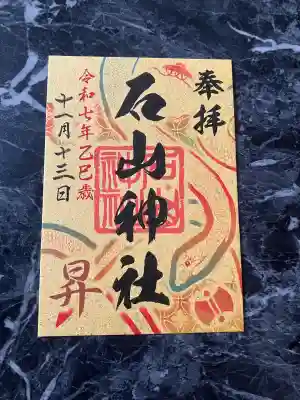 奉拝
石山神社
令和七年乙巳歳
十一月十三日
昇
石山神社